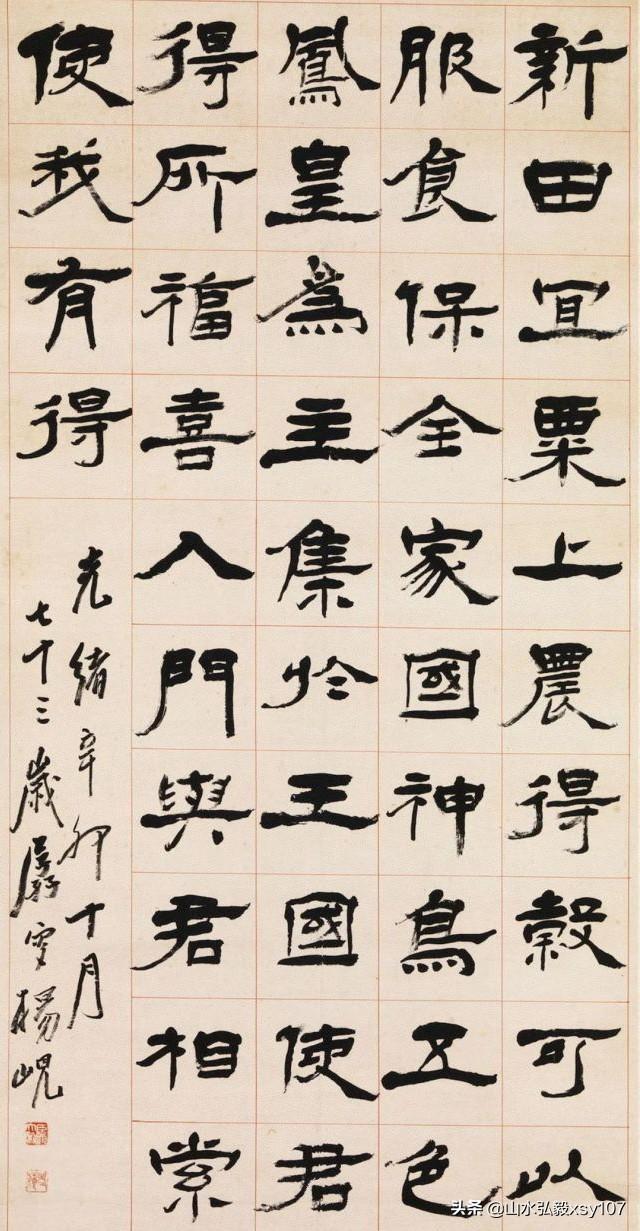 新田宜粟上農得穀可以
服食保全家國神鳥五色
鳳皇為主集於王國使君
得所福喜入門與君相索
使我有得
光緒辛卯十月
七十三歲孱叟楊峴
头条 @山水弘毅xsy107